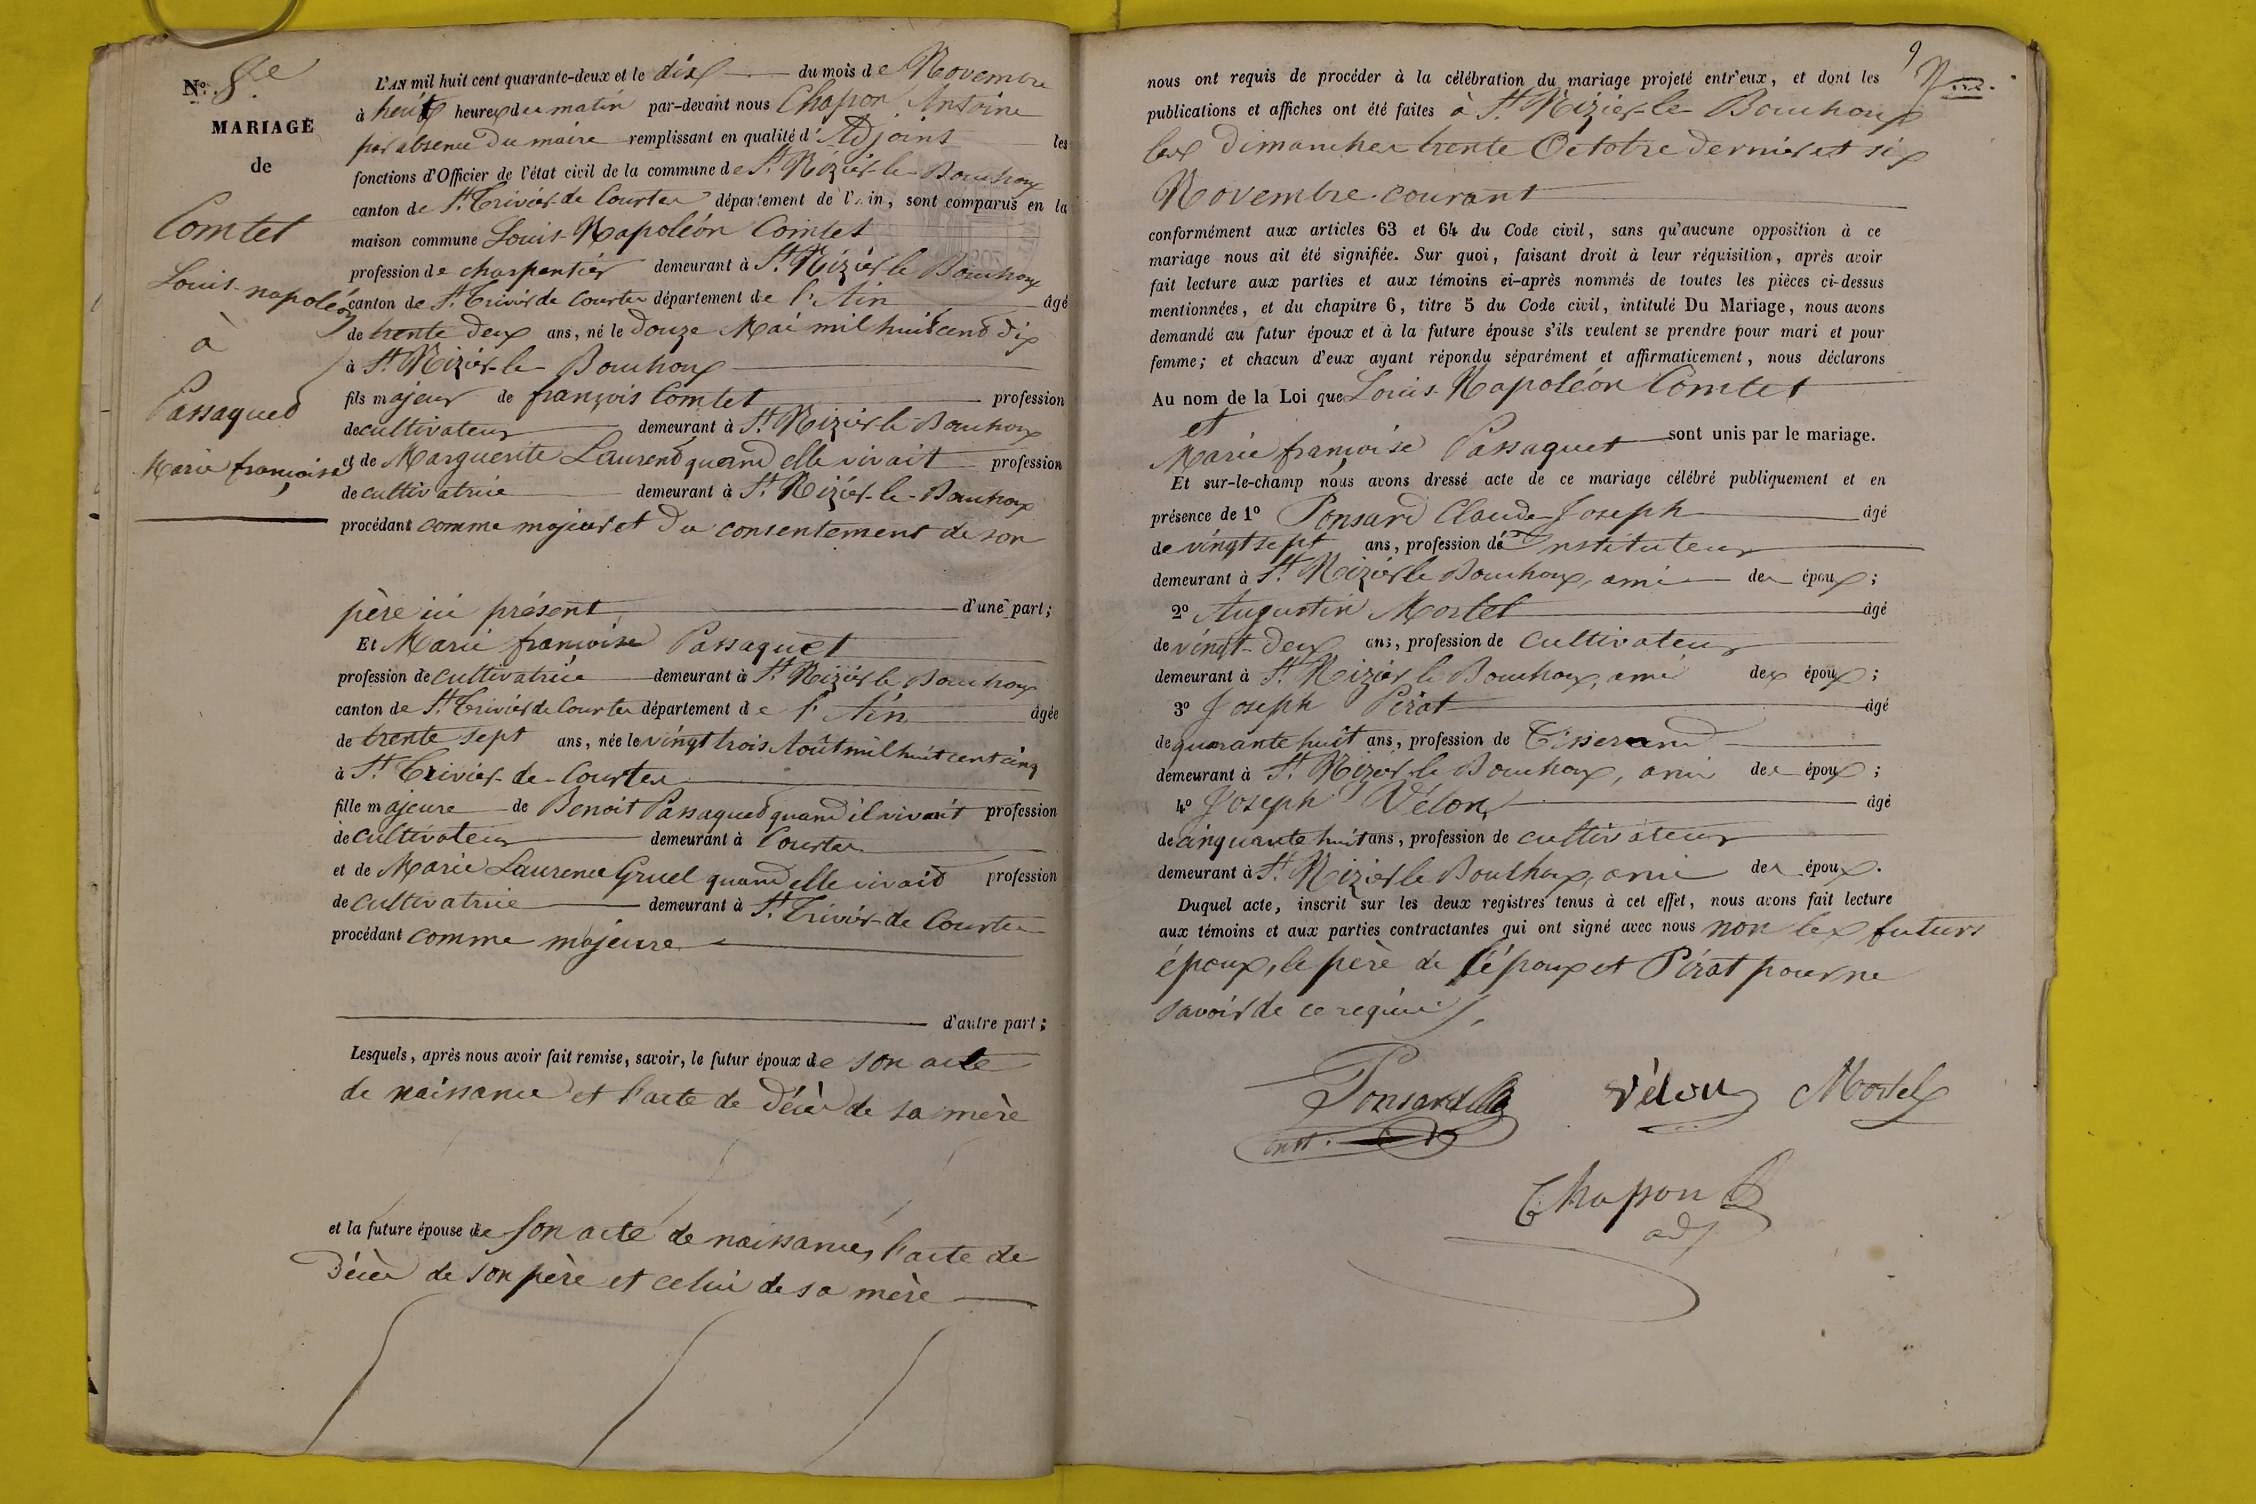 N.º 8.e
MARIAGE
de
Comtet
Louis-napoléon
à
Passaqued
Marie françoise
L'AN mil huit cent quarante-deux et le dix du mois de Novembre
à heuit heures du matin par-devant nous Chapon Antoine
par absence du maire remplissant en qualité d'Adjoint les
fonctions d'Officier de l'état civil de la commune de St. Nizier-le-Bouchoux
canton de St. Trivier-de Courtes département de l'Ain, sont comparus en la
maison commune Louis-Napoléon Comtet
profession de charpentier demeurant à St. Nizier le Bouchoux
canton de St. Trivier de Courtes département de l'Ain âgé
de trente deux ans, né le douze Mai mil huit cent dix
à St. Nizier-le-Bouchoux
fils majeur de françois Comtet profession
de cultivateur demeurant à St. Nizier-le-Bouchoux
et de Marguerite Laurend quand elle vivait profession
de cultivatrice demeurant à St. Nizier-le-Bouchoux
procédant comme majeur et du consentement de son
père ici présent d'une part;
Et Marie françoise Passaquet
profession de cultivatrice demeurant à St. Nizier le Bouchoux
canton de St. Trivier de Courtes département de l'Ain âgée
de trente sept ans, née le vingt trois Août mil huit cent cinq
à St. Trivier-de-Courtes
fille majeure de Benoit Passaqued quand il vivait profession
de cultivateur demeurant à Courtes
et de Marie Laurence Gruel quand elle vivait profession
de cultivatrice demeurant à St. Trivier-de Courtes
procédant comme majeure
d'autre part;
Lesquels, après nous avoir fait remise, savoir, le futur époux de son acte
de naissance et l'acte de décès de sa mère
et la future épouse de son acte de naissance, l'acte de
Décès de son père et celui de sa mère
9
nous ont requis de procéder à la célébration du mariage projeté entr'eux, et dont les
publications et affiches ont été faites à St. Nizier-le-Bouchoux
les dimanches trente Octobre dernier et six
Novembre courant
conformément aux articles 63 et 64 du Code civil, sans qu'aucune opposition à ce
mariage nous ait été signifiée. Sur quoi, faisant droit à leur réquisition, après avoir
fait lecture aux parties et aux témoins ci-après nommés de toutes les pièces ci-dessus
mentionnées, et du chapitre 6, titre 5 du Code civil, intitulé Du Mariage, nous avons
demandé au futur époux et à la future épouse s'ils veulent se prendre pour mari et pour
femme; et chacun d'eux ayant répondu séparément et affirmativement, nous déclarons
Au nom de la Loi que Louis-Napoléon Comtet
et
Marie françoise Passaquet sont unis par le mariage.
Et sur-le-champ nous avons dressé acte de ce mariage célébré publiquement et en
présence de 1º Ponsard Claude Joseph âgé
de vingt sept ans, profession d'Instituteur
demeurant à St. Nizier le Bouchoux, ami des époux;
2º Augustin Mortel âgé
de vingt-deux ans, profession de cultivateur
demeurant à St. Nizier le Bouchoux, ami des époux;
3º Joseph Pérat âgé
de quarante huit ans, profession de Tisserand
demeurant à St. Nizier-le Bouchoux, ami des époux;
4º Joseph Vélon âgé
de cinquante huit ans, profession de cultivateur
demeurant à St. Nizier le Bouchoux, ami des époux.
Duquel acte, inscrit sur les deux registres tenus à cet effet, nous avons fait lecture
aux témoins et aux parties contractantes qui ont signé avec nous non les futurs
époux, le père de l'époux et Pérat pour ne
savoir de ce requis.
Ponsard Vélon Mortel
inst.
Chapon
adj